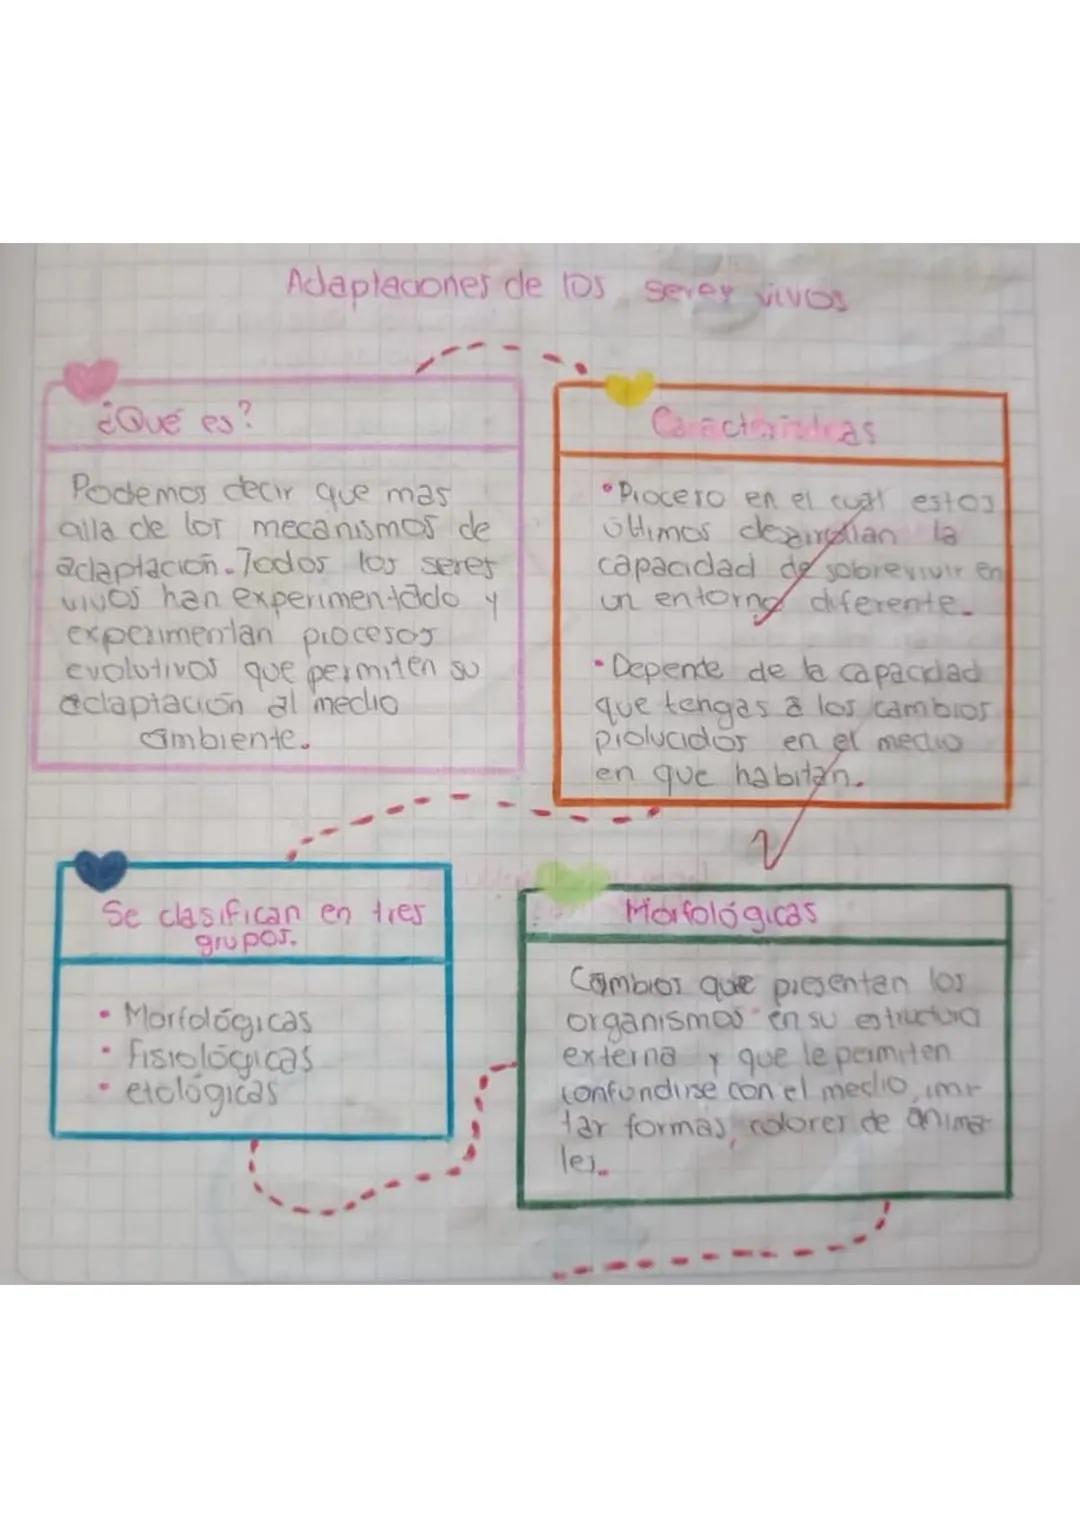 Adaptaciones de los seres vivos
¿Qué es?
Podemos decir que mas
alla de los mecanismos de
adaptación. Todos los seres
vivos han experimentado y
experimentan procesos
evolutivos que permiten su
adaptación al medio
ambiente.
Características
• Proceso en el cual estos
últimos desarrollan la
capacidad de sobrevivir en
un entorno diferente.
• Depende de la capacidad
que tengas a los cambios
prolucidos en el medio
en que habitan.
Se clasifican en tres
grupos.
• Morfológicas
• fisiológicas
• etológicas
Morfológicas
Cambios que presentan los
organismos en su estructura
externa y que le permiten
confundirse con el medio, imi-
tar formas, colores de anima-
les.